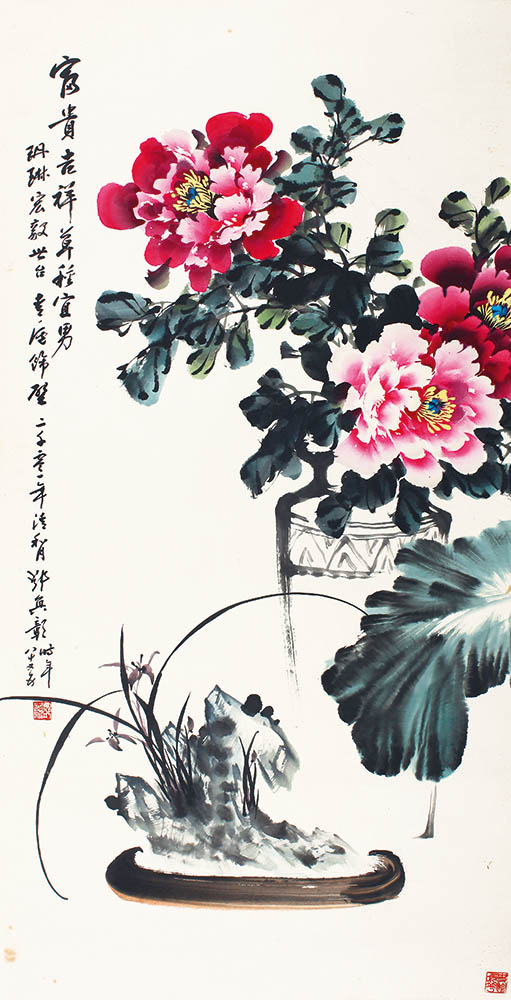 富貴吉祥草種宜男
玥琳宏毅世台喜酒飾壁 二千零一年清和月 鄂
時年